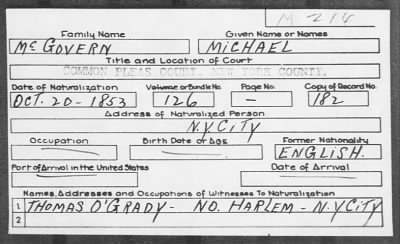 M 214
Family Name Given Name or Names
McGOVERN MICHAEL
Title and Location of Court
COMMON PLEAS COURT, NEW YORK COUNTY.
Date of Naturalization Volume or Bundle No. Page No. Copy of Record No.
OCT. 20-1853 126 - 182
Address of Naturalized Person
N.Y.CITY
Occupation Birth Date or Age Former Nationality
ENGLISH.
Port of Arrival in the United States Date of Arrival
Names, Addresses and Occupations of Witnesses To Naturalization
1 THOMAS O'GRADY- NO. HARLEM - N.Y.CITY
2